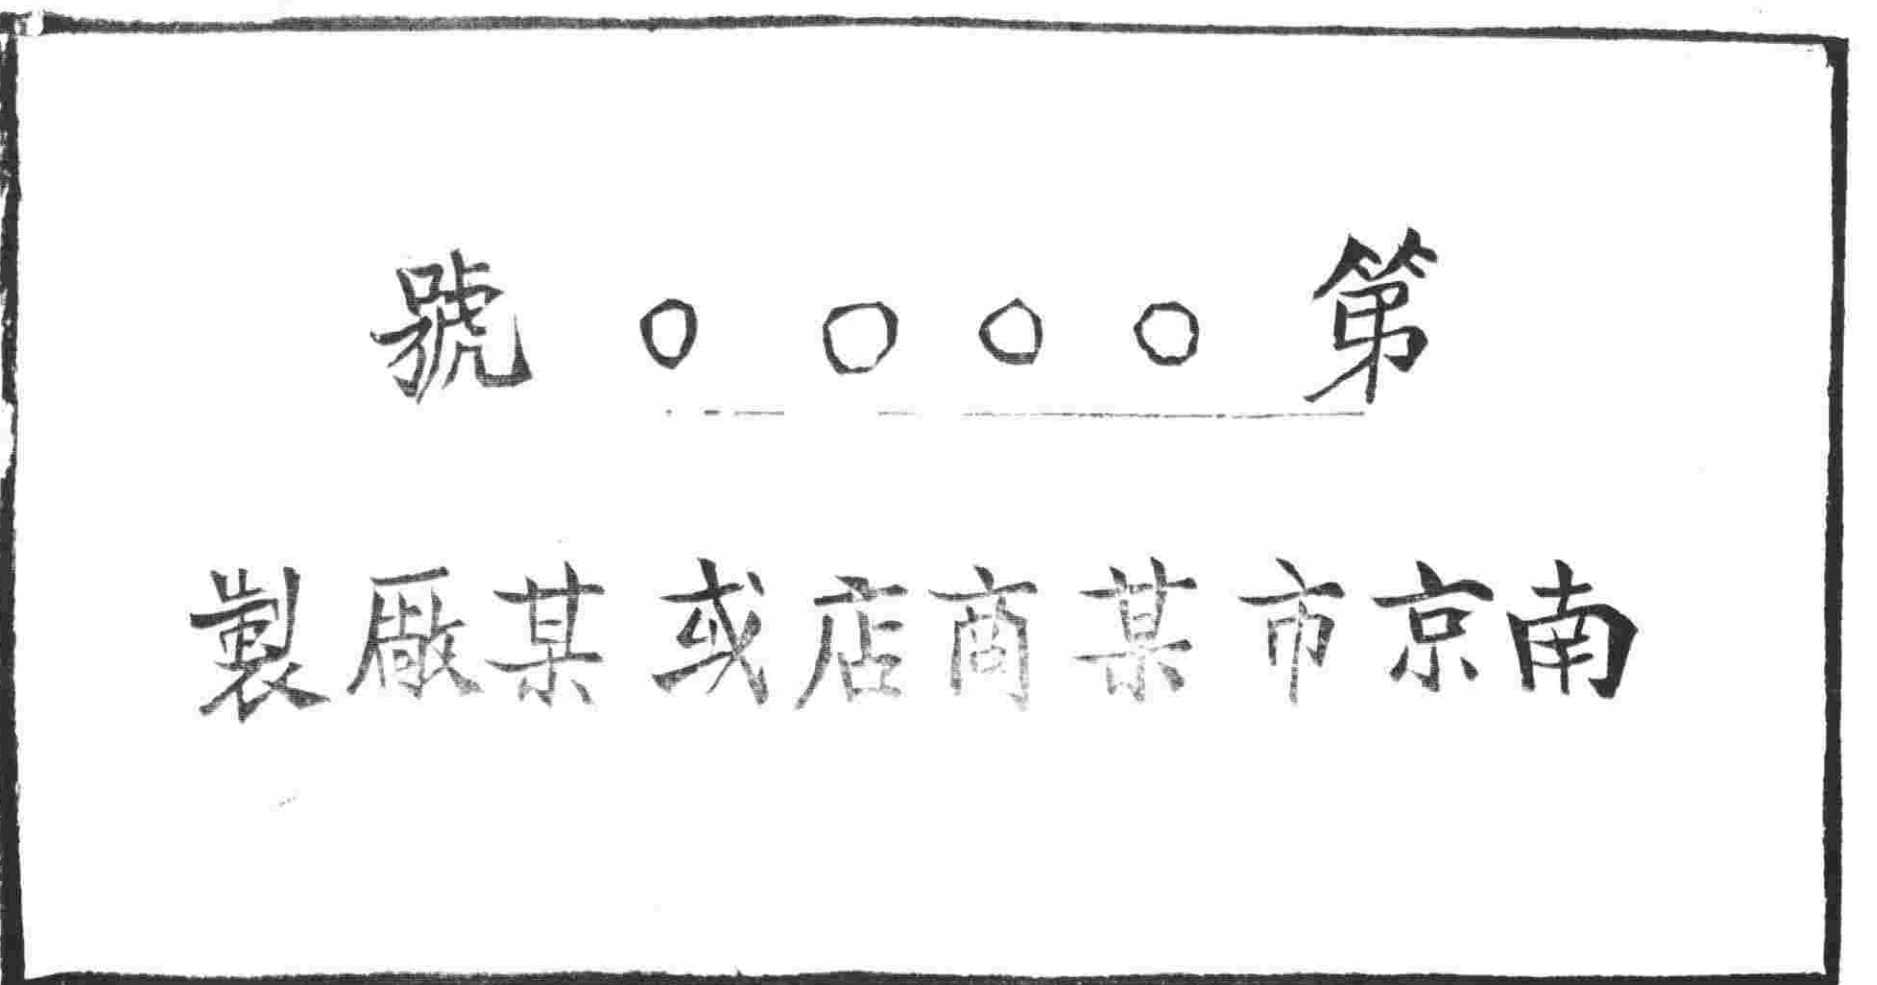 第〇〇〇〇號
南京市某商店或某厰製